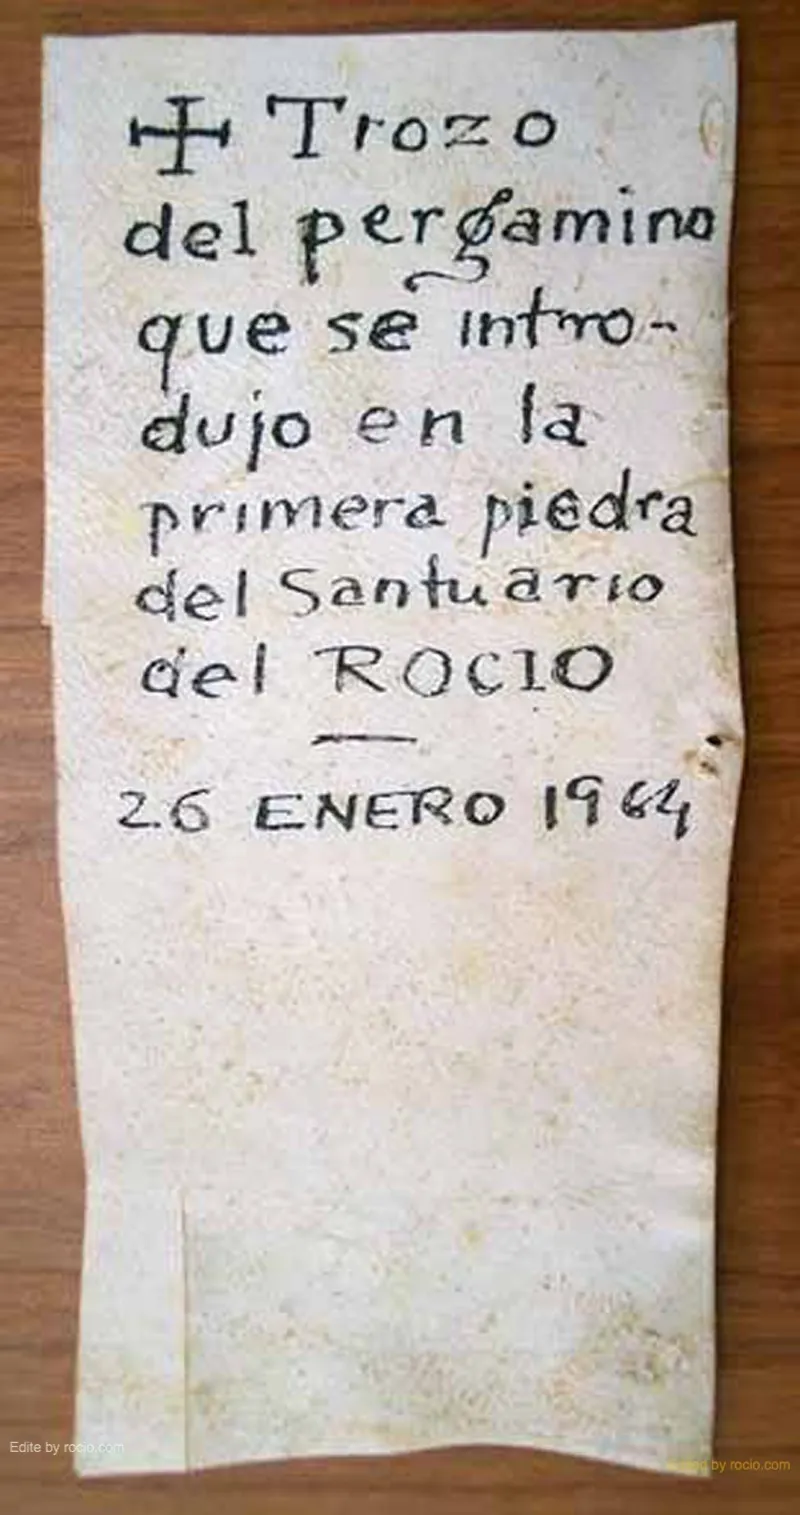 ✠ Trozo
del pergamino
que se intro-
dujo en la
primera piedra
del Santuario
del ROCIO
—
26 ENERO 1964
Edite by rocio.com
by rocio.com